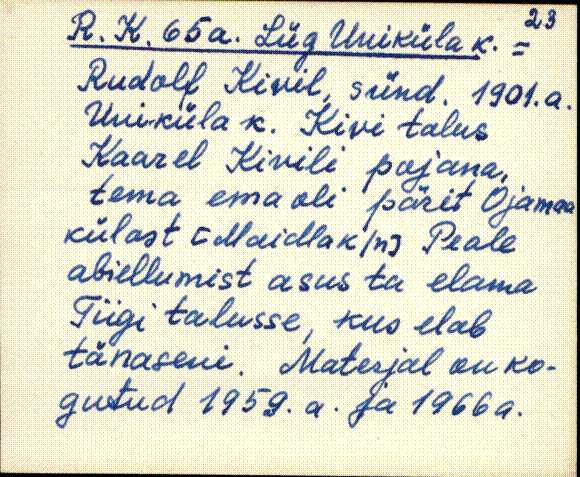 23
R. K. 65 a. Lüg Uniküla k. =
Rudolf Kivil, sünd. 1901. a.
Uniküla k. Kivi talus
Kaarel Kivili pojana,
tema ema oli pärit Ojamaa
külast [Maidla k/n] Peale
abiellumist asus ta elama
Tiigi talusse, kus elab
tänaseni. Materjal on ko-
gutud 1959. a. ja 1966 a.